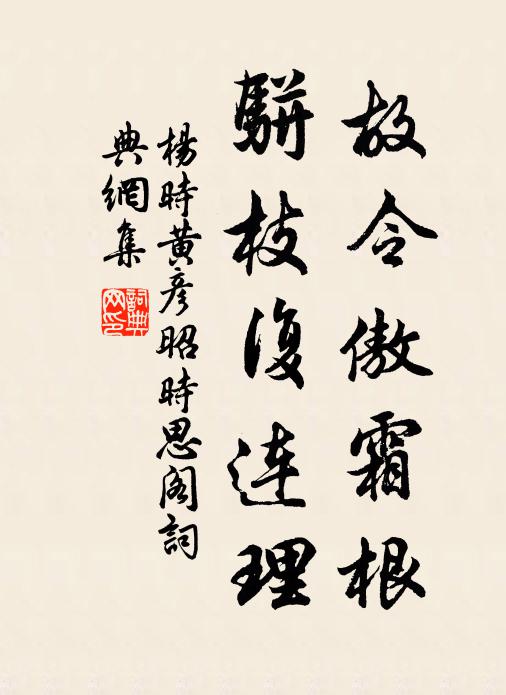 故令傲霜根
駢枝復連理
楊時黄彦昭時思阁詞
典網集
詞典网印